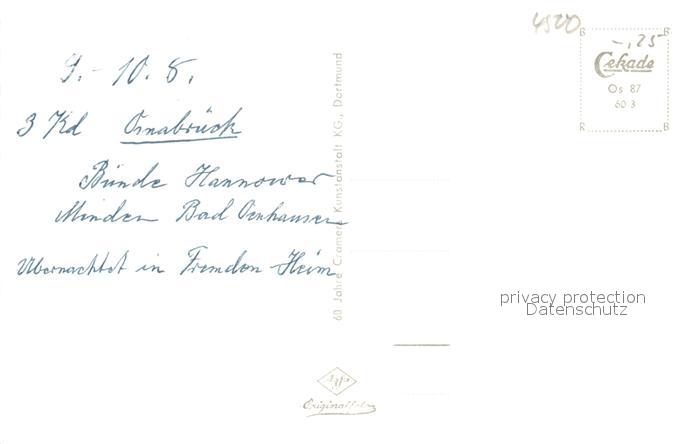 4500
-,25
B B
Cekade
Os 87
60 3
R B
9.-10.8.
3 Kd Osnabrück
Bünde Hannover
Minden Bad Oenhausen
Übernachtet in Fremden-Heim
60 Jahre Cramers Kunstanstalt KG., Dortmund
privacy protection
Datenschutz
Agfa
Originalfoto